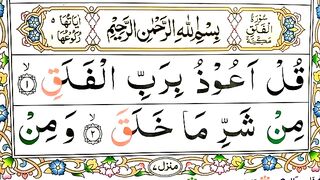 سُوْرَةُ الْفَلَقِ مَكِّيَّةٌ
بِسْمِ اللهِ الرَّحْمٰنِ الرَّحِيْمِ
اٰيَاتُهَا ٥ رُكُوْعُهَا ١
قُلْ اَعُوْذُ بِرَبِّ الْفَلَقِ ۙ﴿١﴾
مِنْ شَرِّ مَا خَلَقَ ۙ﴿٢﴾ وَمِنْ
منزل ٧